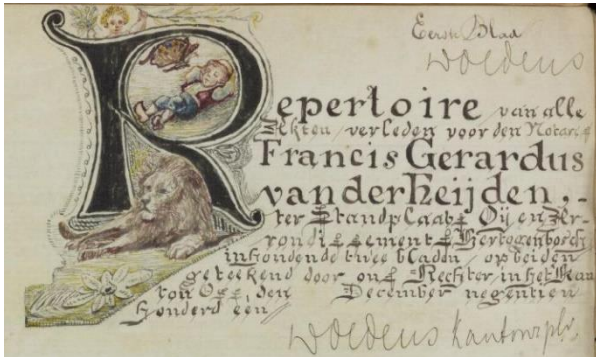 Eerste Blad
Woldens
Repertoire van alle
Akten verleden voor den Notaris
Francis Gerardus
van der Heijden,
ter Standplaats Oijen Ar-
rondissement 'sHertogenbosch
inhoudende twee bladen op beiden
geteekend door ons Rechter in het Kan
ton Oss, den December negentien
honderd een
Woldens Kantonr